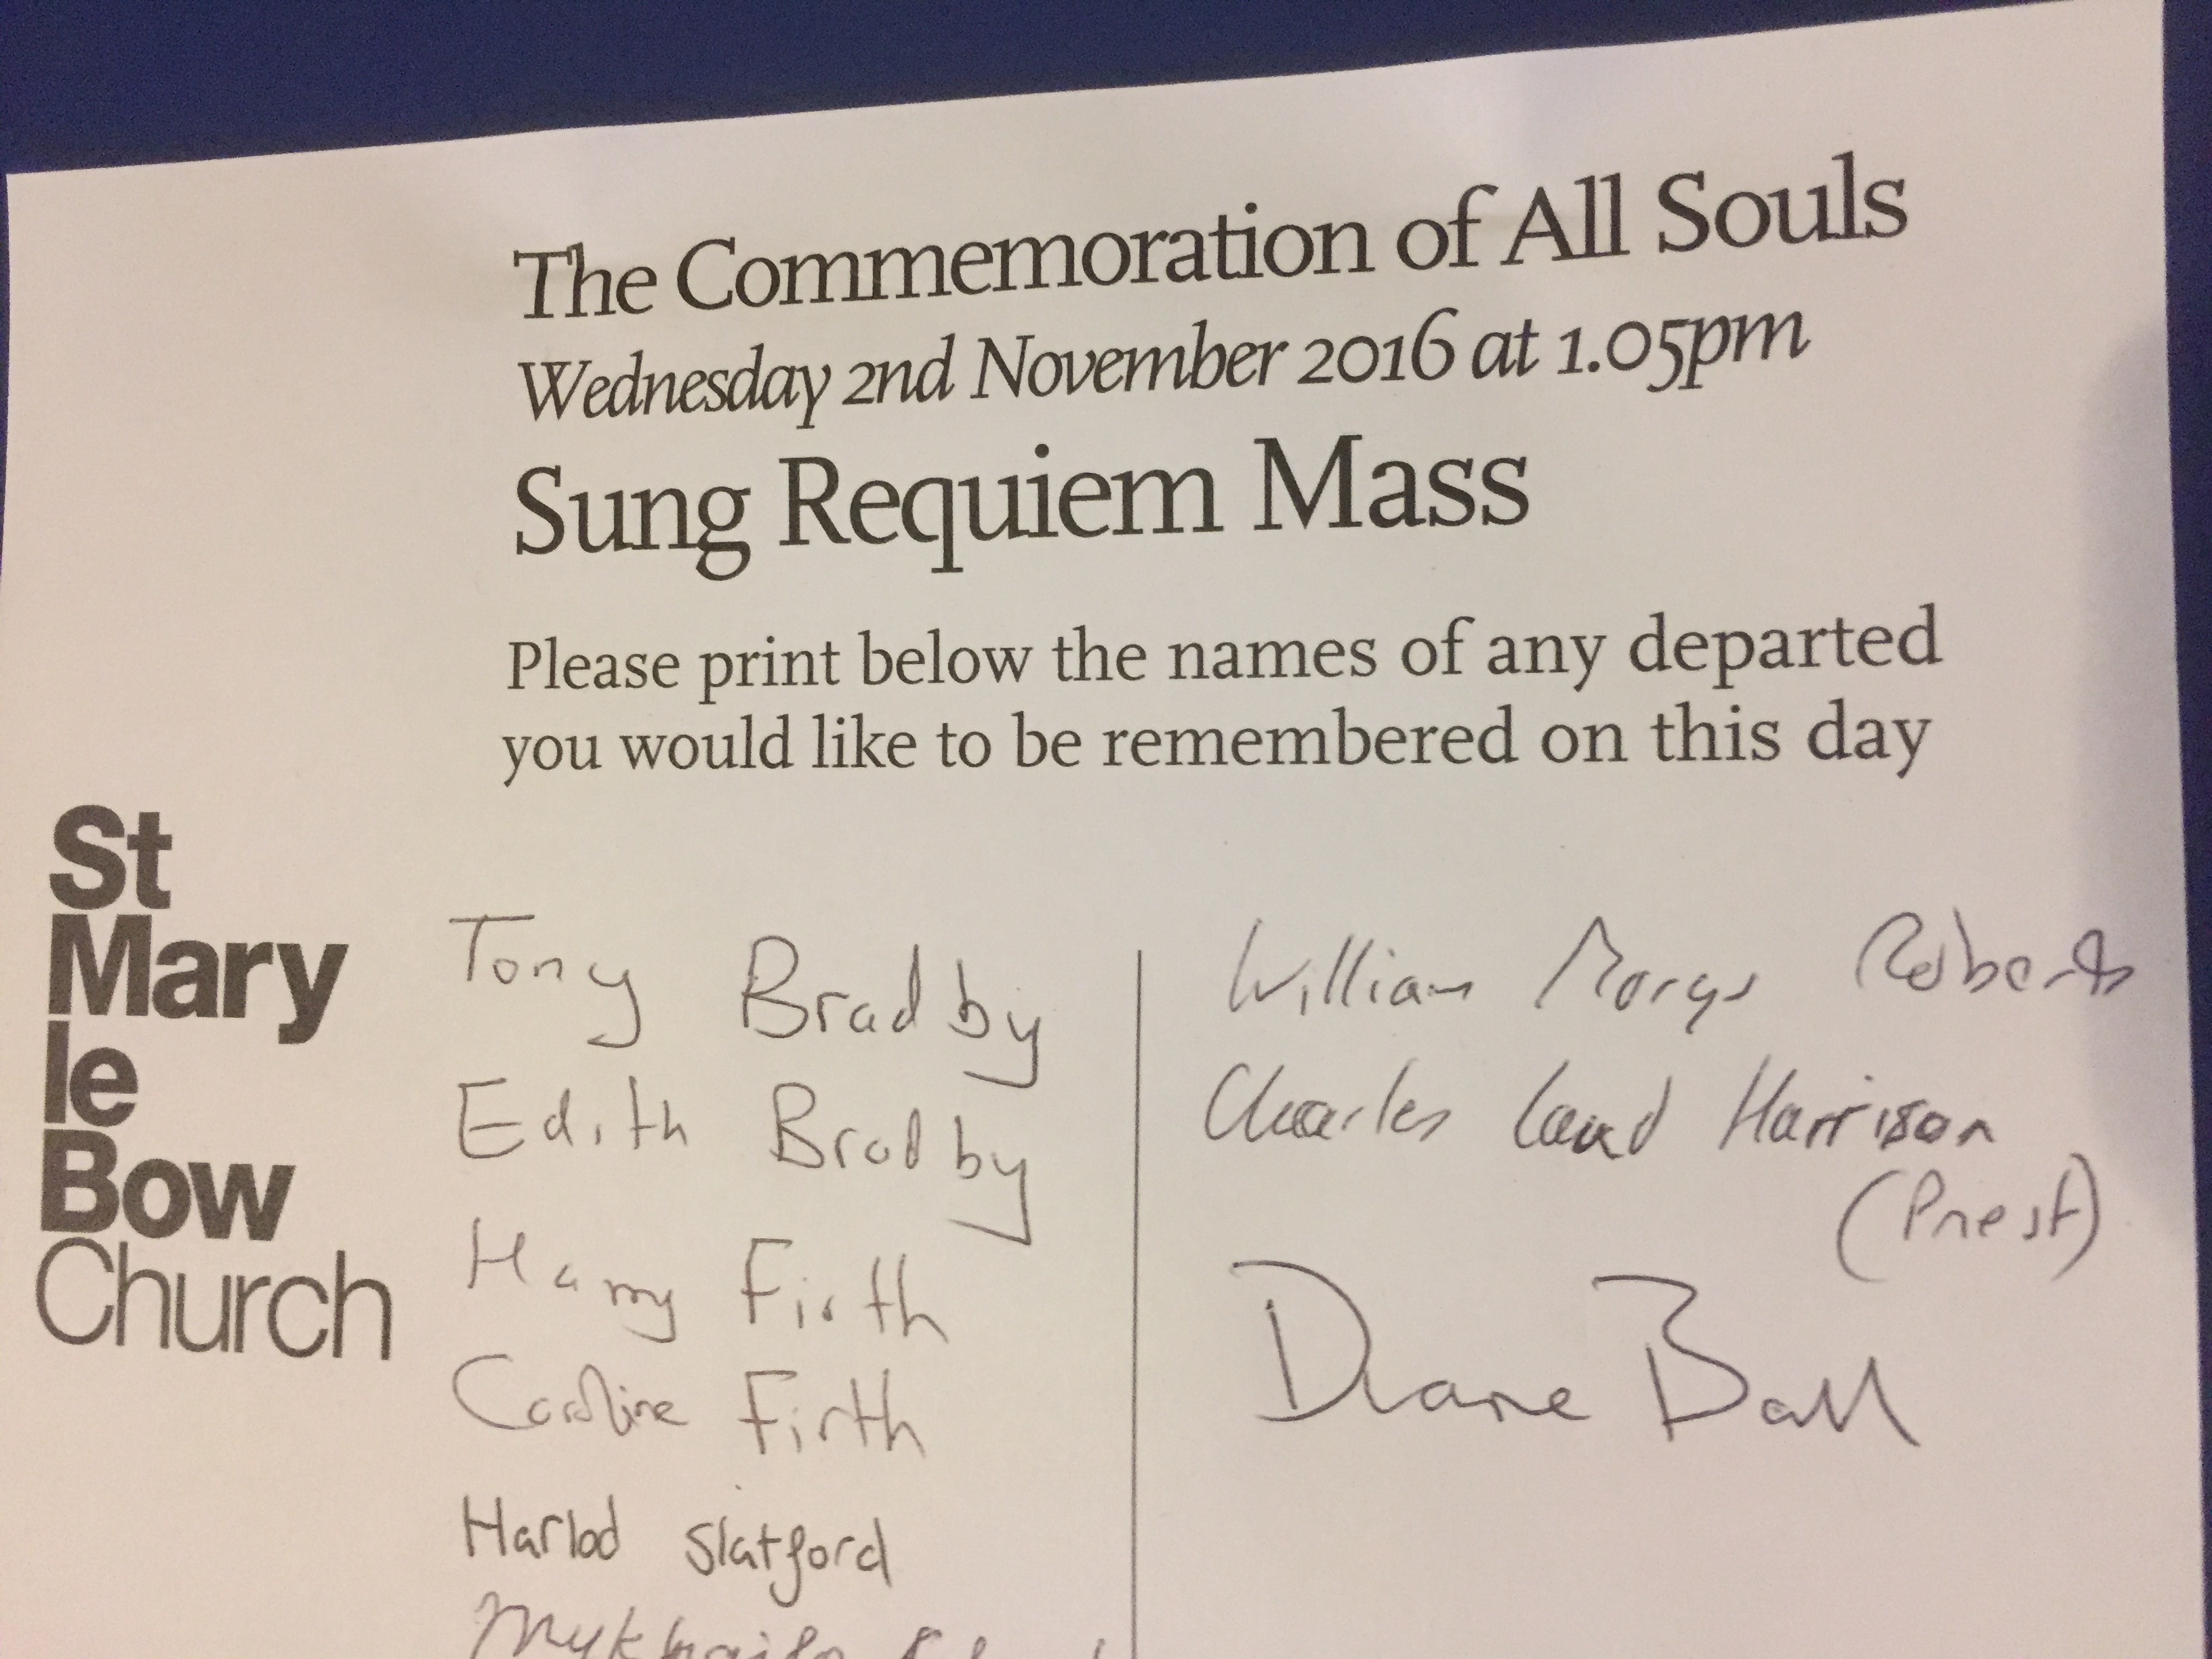 The Commemoration of All Souls
Wednesday 2nd November 2016 at 1.05pm
Sung Requiem Mass
Please print below the names of any departed
you would like to be remembered on this day
St
Mary
le
Bow
Church
Tony Bradby
Edith Bradby
Harry Firth
Caroline Firth
Harlod Slatford
Mykhailo
William Roberts
Charles Laud Harrison
(Priest)
Diane Ball